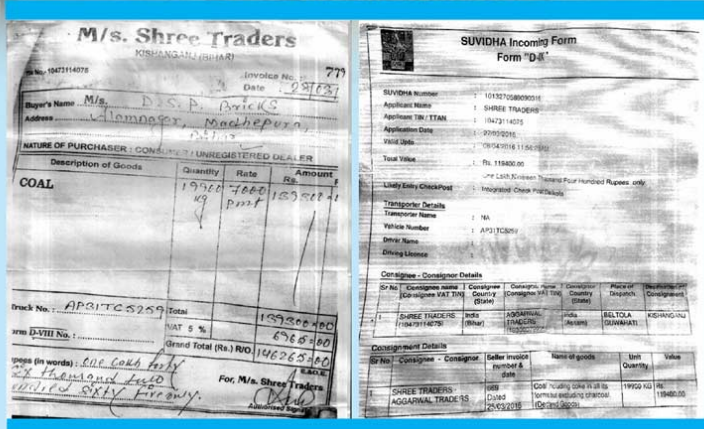 M/s. Shree Traders
KISHANGANJ (BIHAR)
10473114075
Invoice No. : 779
Date :
Buyer's Name M/s. D.S.P. Bricks
Address Alamnagar, Madhepura,
Bihar
NATURE OF PURCHASER : CONSUMER / UNREGISTERED DEALER
Description of Goods Quantity Rate Amount
Rs.
COAL 19900 7000
Kg
Truck No. : AP31TC5259 Total 139300=00
VAT 5 % 6965=00
D-VIII No. :
Grand Total (Rs.) R/O. 146265=00
(in words) : One Lakh forty
six thousand two
hundred sixty five only.
E.&O.E.
For, M/s. Shree Traders
Authorised
SUVIDHA Incoming Form
Form "D-IX"
SUVIDHA Number :
Applicant Name : SHREE TRADERS
Applicant TIN / TTAN : 10473114075
Application Date :
Valid Upto :
Total Value : Rs. 119400.00
One Lakh Nineteen Thousand Four Hundred Rupees only
Likely Entry CheckPost : Integrated Check Post
Transporter Details
Transporter Name : NA
Vehicle Number : AP31TC5259
Driver Name
Driving Licence
Consignee - Consignor Details
Sr No Consignee name [Consignee VAT TIN] Consignee Country (State) Consignor name [Consignor VAT TIN] Consignor Country (State) Place of Dispatch Destination of Consignment
1 SHREE TRADERS [10473114075] India (Bihar) AGGARWAL TRADERS India (Assam) BELTOLA GUWAHATI KISHANGANJ
Consignment Details
Sr No Consignee - Consignor Seller invoice number & date Name of goods Unit Quantity Value
1 SHREE TRADERS - AGGARWAL TRADERS 669 Dated 25/03/2016 Coal including coke in all its forms but excluding charcoal. (Declared Goods) 19900 KG Rs. 119400.00